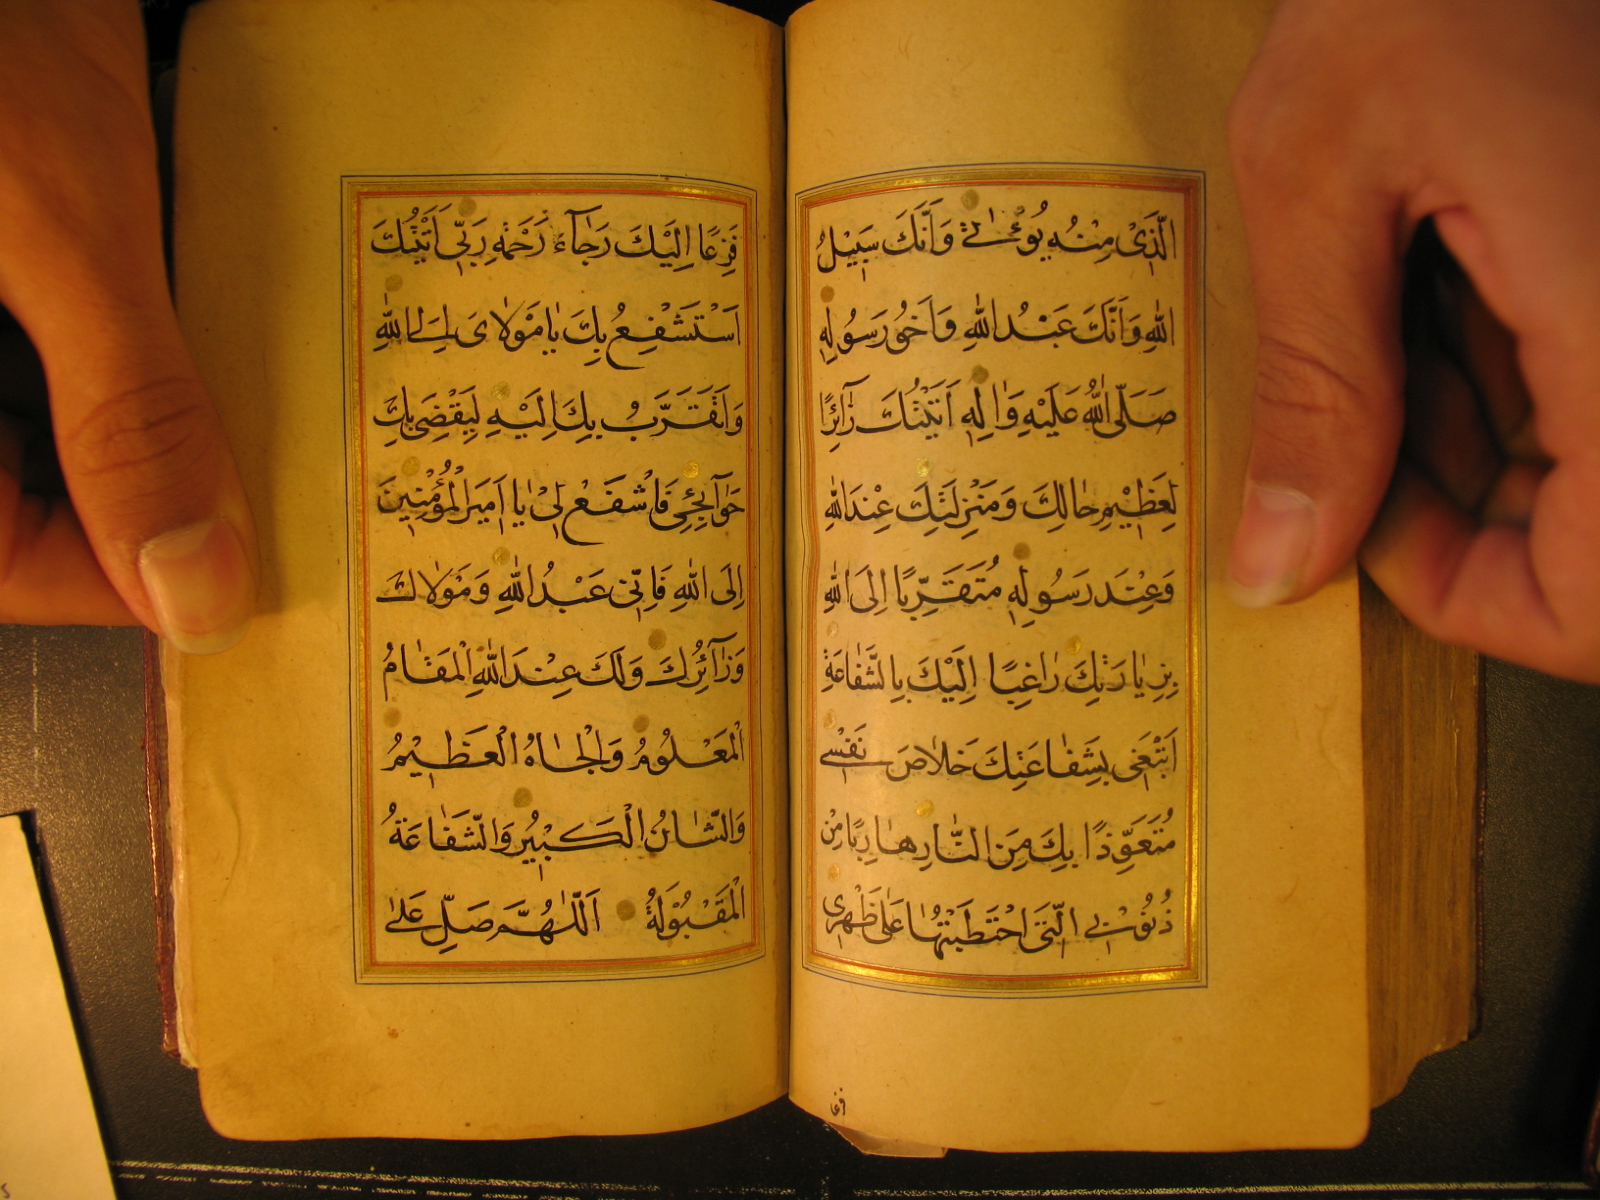 الَّذِىْ مِنْهُ يُوْتٰى وَاَنَّكَ سَبِيْلُ
اللهِ وَاَنَّكَ عَبْدُ اللهِ وَاَخُوْ رَسُوْلِهِ
صَلَّى اللهُ عَلَيْهِ وَاٰلِهِ اَتَيْتُكَ زٰٓائِرًا
لِعَظِيْمِ حٰالِكَ وَمَنْزِلَتِكَ عِنْدَ اللهِ
وَعِنْدَ رَسُوْلِهِ مُتَقَرِّبًا اِلَى اللهِ
بِزِيٰارَتِكَ رٰاغِبًا اِلَيْكَ بِالشَّفٰاعَةِ
اَبْتَغِى بِشَفٰاعَتِكَ خَلٰاصَ نَفْسِى
مُتَعَوِّذًا بِكَ مِنَ النّٰارِ هٰارِبًا مِنْ
ذُنُوْبِى الَّتِى احْتَطَبْتُهٰا عَلٰى ظَهْرِى
فزعا
فَزِعًا اِلَيْكَ رَجٰآءَ رَحْمَةِ رَبِّى اَتَيْتُكَ
اَسْتَشْفِعُ بِكَ يٰا مَوْلٰاىَ اِلَى اللهِ
وَاَتَقَرَّبُ بِكَ اِلَيْهِ لِيَقْضِىَ بِكَ
حَوٰآئِجِى فَاشْفَعْ لِىْ يٰا اَمِيْرَ الْمُؤْمِنِينَ
اِلَى اللهِ فَاِنِّى عَبْدُ اللهِ وَمَوْلٰاكَ
وَزٰآئِرُكَ وَلَكَ عِنْدَ اللهِ الْمَقٰامُ
الْمَعْلُوْمُ وَالْجٰاهُ الْعَظِيْمُ
وَالشّٰانُ الْكَبِيْرُ وَالشَّفٰاعَةُ
الْمَقْبُوْلَةُ اَللّٰهُمَّ صَلِّ عَلٰى